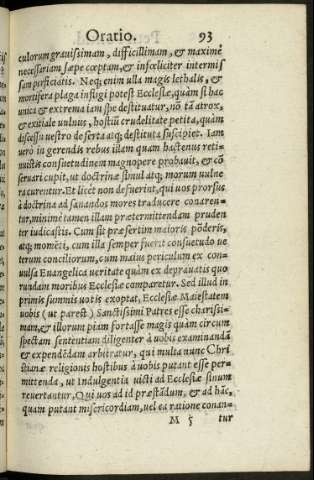 Oratio. 93
culorum grauissimam, difficillimam, & maximè
necessariam sæpe cœptam, & infœliciter intermis
sam perficiatis. Neq; enim ulla magis lethalis, &
mortifera plaga infligi potest Ecclesiæ, quàm si hac
unica & extrema iam spe destituatur, nõ tã atrox,
& exitiale uulnus, hostiũ crudelitate petita, quàm
discessu uestro deserta atq; destituta suscipiet. Iam
uerò in gerendis rebus illam quam hactenus reti-
nuistis consuetudinem magnopere probauit, & cõ
seruari cupit, ut doctrina simul atq; morum uulne
ra curentur. Et licèt non defuerint, qui uos prorsus
à doctrina ad sanandos mores traducere conaren-
tur, minimè tamen illam prætermittendam pruden
ter iudicastis. Cum sit præsertim maioris põderis,
atq; momẽti, cum illa semper fuerit consuetudo ue
terum conciliorum, cum maius periculum ex con-
uulsa Euangelica ueritate quàm ex deprauatis quo
rundam moribus Ecclesiæ comparetur. Sed illud in
primis summis uotis exoptat, Ecclesiæ Maiestatem
uobis (ut par est) Sanctissimi Patres esse charissi-
mam, & illorum piam fortasse magis quàm circum
spectam sententiam diligenter à uobis examinandã
& expendẽdam arbitratur, qui multa nunc Chri
stianæ religionis hostibus à uobis putant esse per-
mittenda, ut Indulgentia uicti ad Ecclesiæ sinum
reuertantur. Qui uos ad id præstãdum, & ad hãc,
quam putant misericordiam, uel ea ratione conan-
M 5 tur